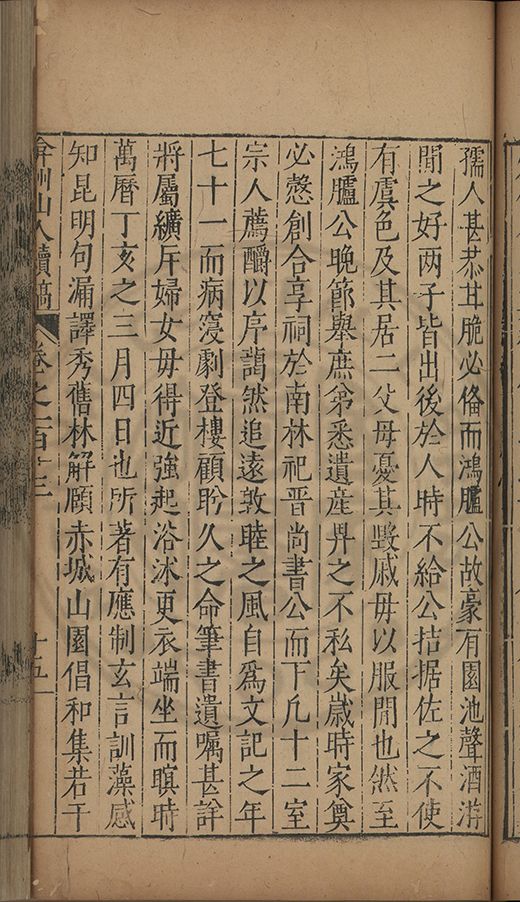 孺人甚恭甘脆必俻而鴻臚公故豪有園池聲酒游
閒之好两子皆出後於人時不給公拮据佐之不使
有虞色及其居二父母憂其毀戚毋以服閒也然至
鴻臚公晚節舉庶弟悉遺産畀之不私矣嵗時家奠
必慤創合享祠於南林祀晋尚書公而下凢十二室
宗人薦酹以序藹然追遠敦睦之風自爲文記之年
七十一而病寖劇登樓顧盻久之命筆書遺嘱甚詳
將屬纊斥婦女毋得近強起浴沐更衣端坐而瞑時
萬曆丁亥之三月四日也所著有應制玄言訓藻感
知昆明句漏譯秀舊林解願赤城山園倡和集若干
弇州山人續稿 卷之一百十三 十五